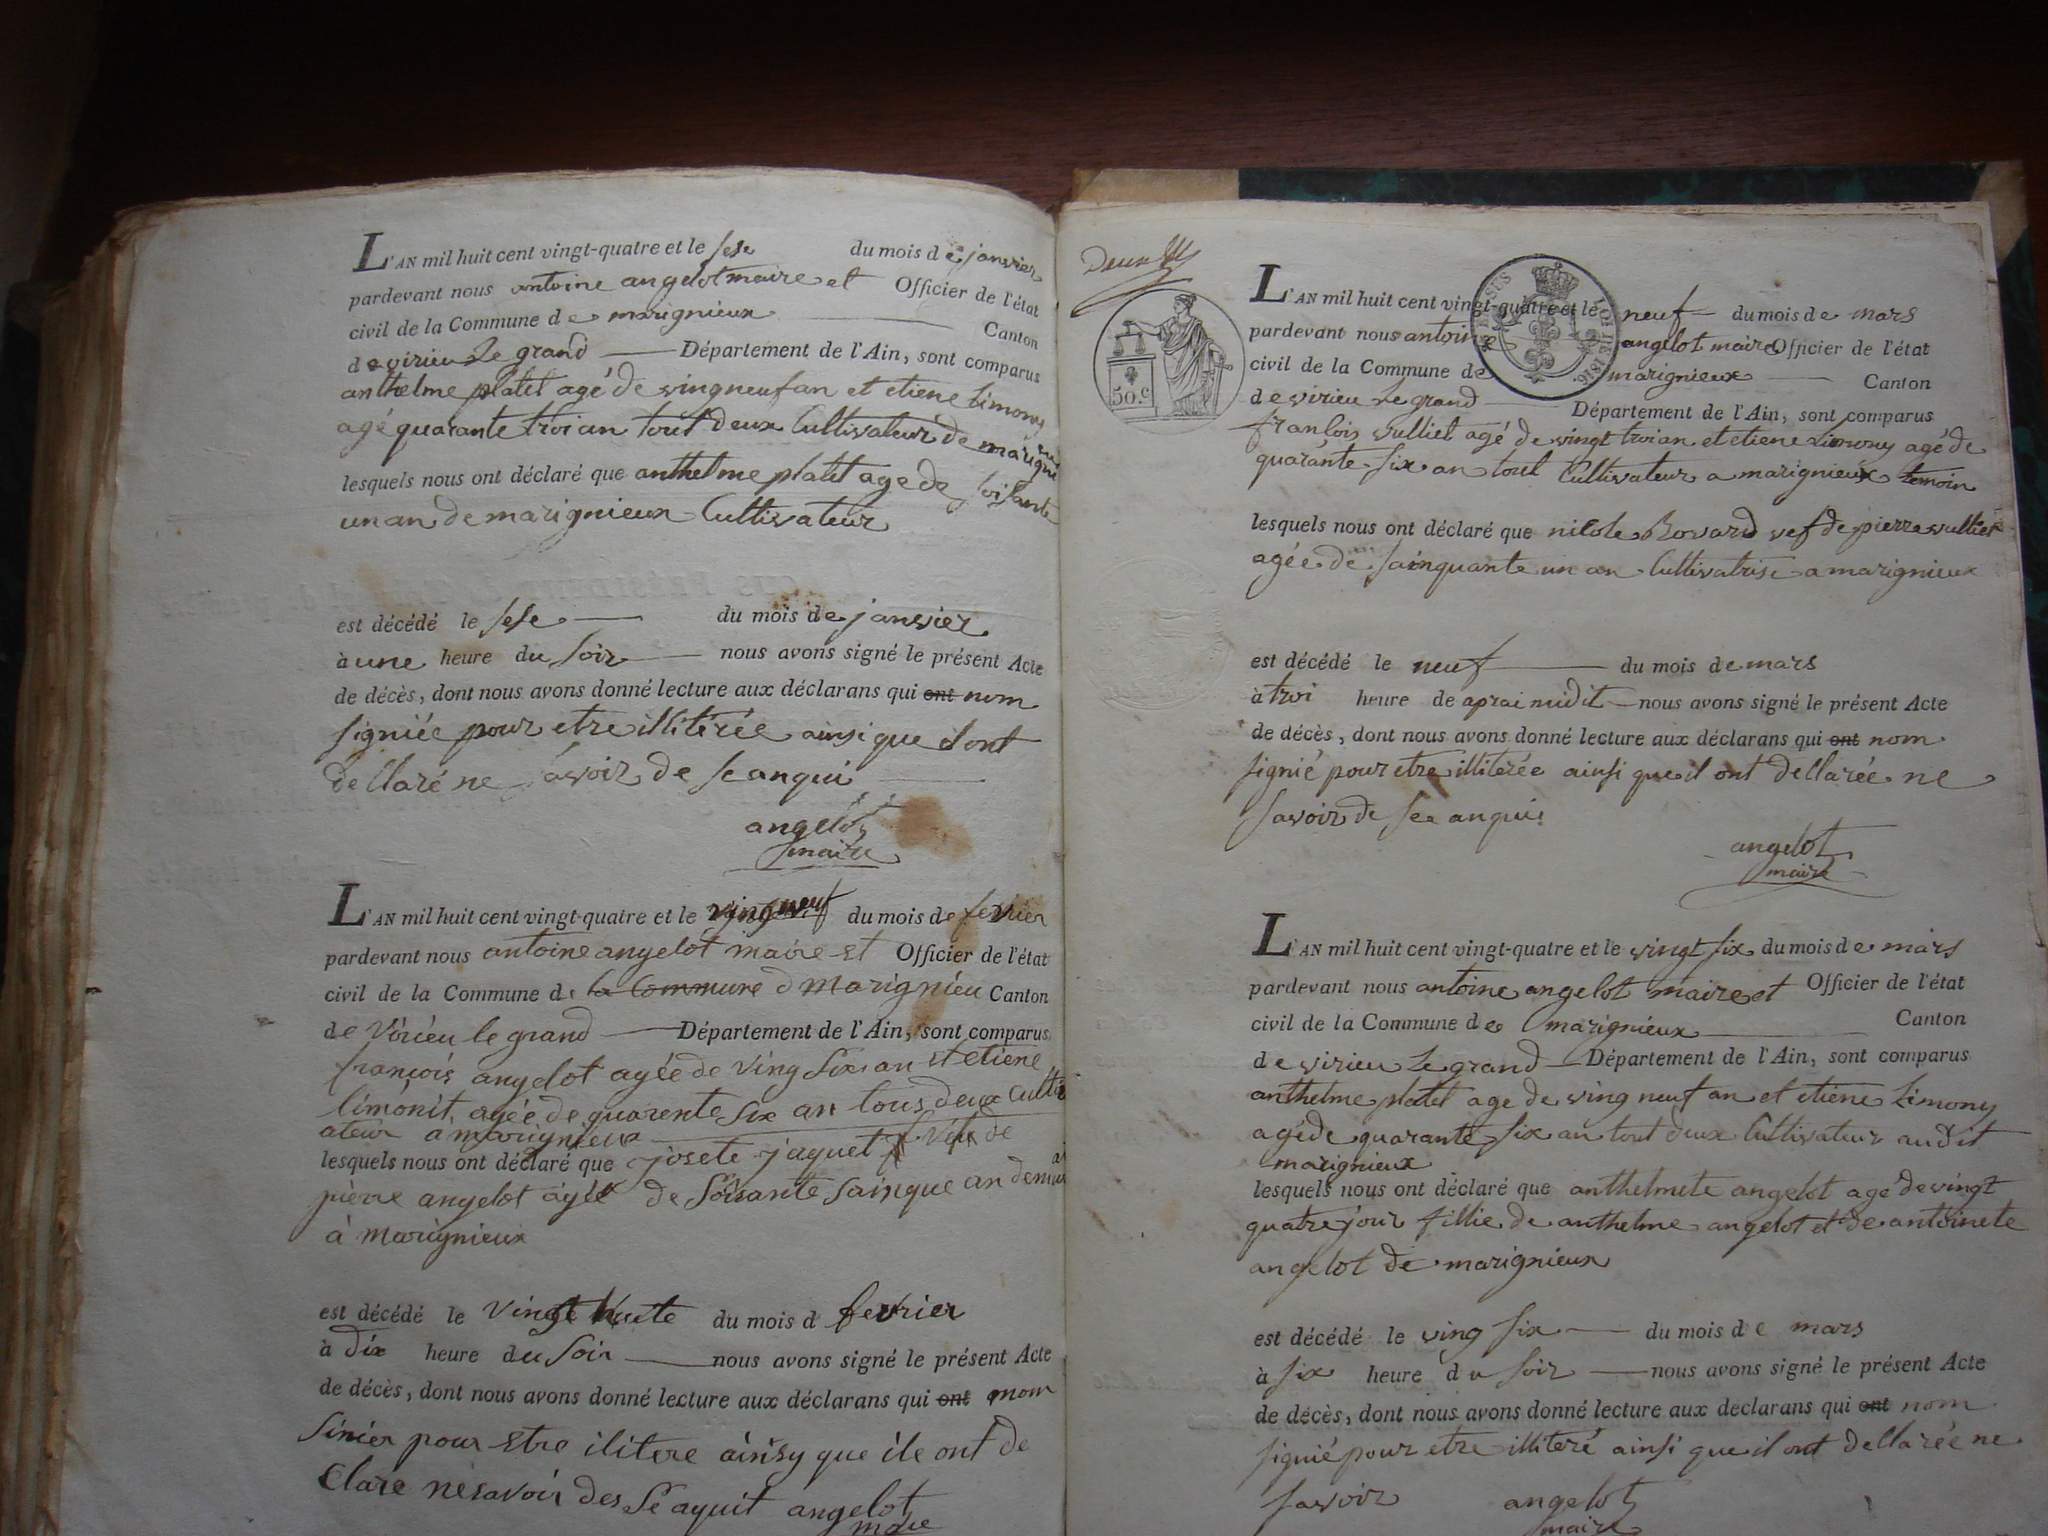 L'AN mil huit cent vingt-quatre et le sese du mois de janvier
pardevant nous antoine angelot maire et Officier de l'état
civil de la Commune de marignieux Canton
de virieu Le grand Département de l'Ain, sont comparus
anthelme platel agé de vingneuf an et etiene Limony
agé quarante troi an tout deux Cultivateur de marignieux
lesquels nous ont déclaré que anthelme platel age de soisante
un an de marignieux Cultivateur
est décédé le sese du mois de janvier
à une heure du soir nous avons signé le présent Acte
de décès, dont nous avons donné lecture aux déclarans qui ont nom
signiée pour etre illitérée ainsi que il ont
dellaré ne savoir de se anqui
angelot
maire
L'AN mil huit cent vingt-quatre et le vingneuf du mois de fevrier
pardevant nous antoine angelot maire et Officier de l'état
civil de la Commune de la Commune d Marignieu Canton
de Virieu le grand Département de l'Ain, sont comparus
françois angelot agée de ving six an et etiene
limonit agée de quarente six an tous deux cultiv
ateur a marignieux
lesquels nous ont déclaré que josete jaquet veve de
pierre angelot agée de soisante sainque an demeura
à marignieux
est décédé le vingt huite du mois d fevrier
à dix heure du soir nous avons signé le présent Acte
de décès, dont nous avons donné lecture aux déclarans qui ont nom
sinier pour etre ilitere ainsy que ile ont de
clare ne savoir des se aquit angelot
maire
L'AN mil huit cent vingt-quatre et le neuf du mois de mars
pardevant nous antoine angelot maire Officier de l'état
civil de la Commune de marignieux Canton
de virieu Le grand Département de l'Ain, sont comparus
50.c
LOI DE 1816.
franlois vulliet agé de vingt troi an et etiene Limony agé de
quarante six an tout Cultivateur a marignieux temoin
lesquels nous ont déclaré que nicole Bovard vef de pierre vulliet
agée de sainquante un an Cultivatrise a marignieux
est décédé le neuf du mois de mars
à troi heure de aprai midit nous avons signé le présent Acte
de décès, dont nous avons donné lecture aux déclarans qui ont nom
signié pour etre illiterée ainsi que il ont dellarée ne
savoir de see anqui
angelot
maire
L'AN mil huit cent vingt-quatre et le vingt six du mois de mars
pardevant nous antoine angelot maire et Officier de l'état
civil de la Commune de marignieux Canton
de virieu Le grand Département de l'Ain, sont comparus
anthelme platel age de ving neuf an et etiene Limony
agé de quarante six an tout deux Cultivateur audit
marignieux
lesquels nous ont déclaré que anthelmete angelot age de vingt
quatre jour fillie de anthelme angelot et de antoinete
angelot de marignieux
est décédé le ving six du mois de mars
à six heure du soir nous avons signé le présent Acte
de décès, dont nous avons donné lecture aux declarans qui ont nom
signié pour etre illiteré ainsi que il ont dellarée ne
savoir angelot
maire